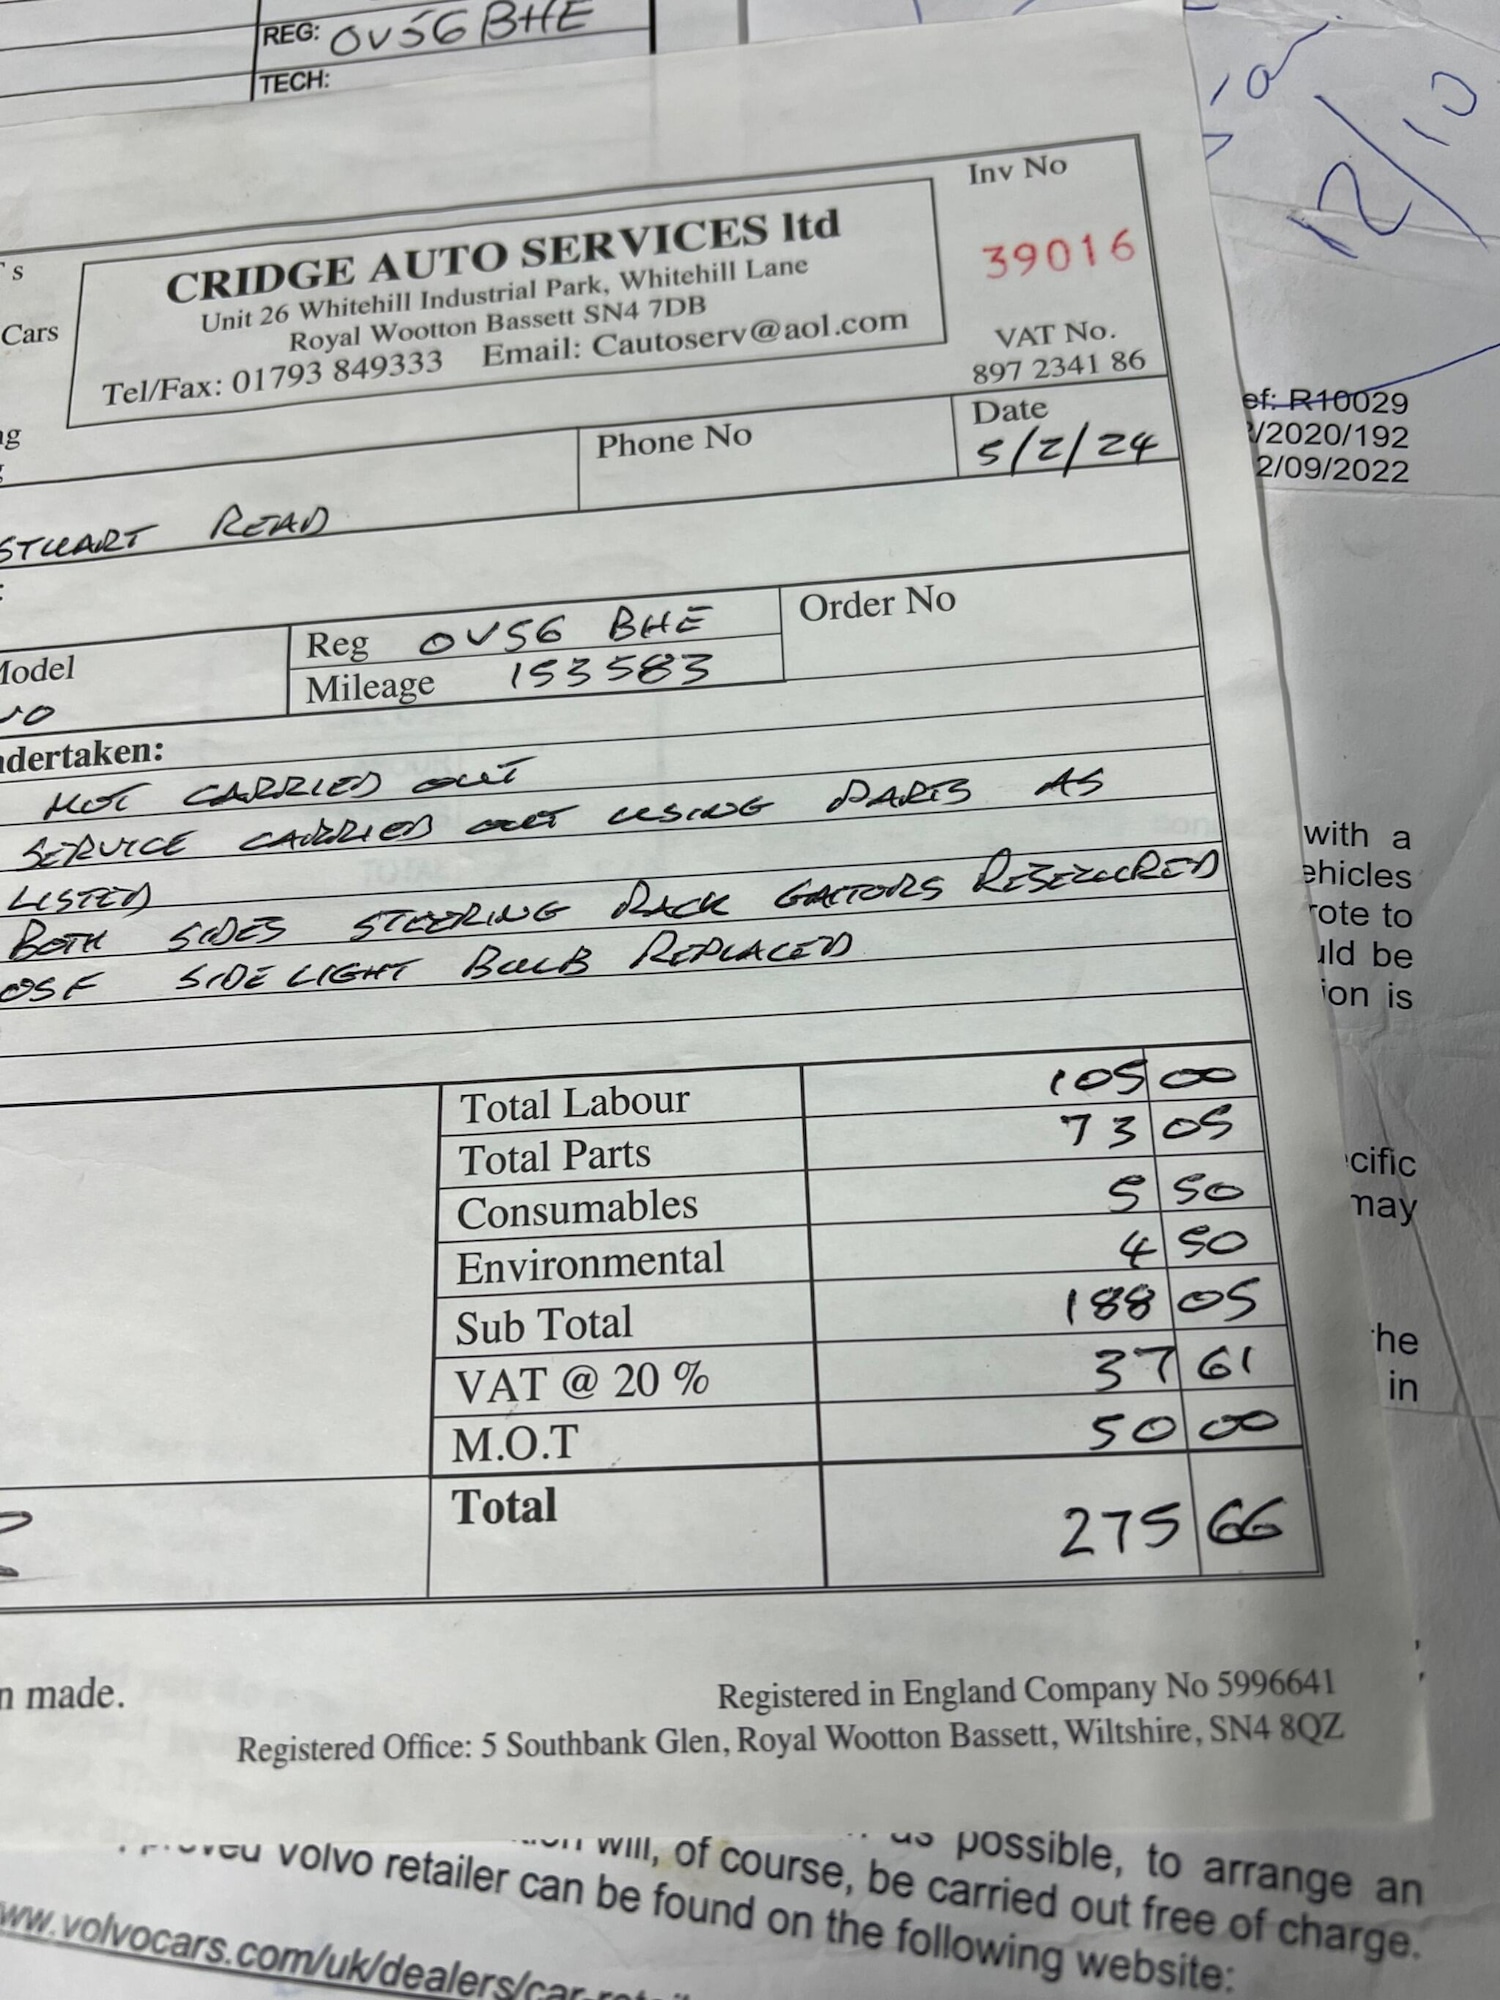 REG: OV56 BHE
TECH:
12/10
Inv No
39016
CRIDGE AUTO SERVICES ltd
Unit 26 Whitehill Industrial Park, Whitehill Lane
Royal Wootton Bassett SN4 7DB
Tel/Fax: 01793 849333 Email: Cautoserv@aol.com
's
Cars
VAT No.
897 2341 86
Phone No
Date
5/2/24
STUART READ
Reg OV56 BHE
Mileage 153583
Order No
Model
ndertaken:
MOT CARRIED OUT
SERVICE CARRIED OUT USING PARTS AS
LISTED
BOTH SIDES STEERING RACK GAITORS RESECURED
OSF SIDE LIGHT BULB REPLACED
Total Labour 105 00
Total Parts 73 05
Consumables 5 50
Environmental 4 50
Sub Total 188 05
VAT @ 20 % 37 61
M.O.T 50 00
Total 275 66
n made.
Registered in England Company No 5996641
Registered Office: 5 Southbank Glen, Royal Wootton Bassett, Wiltshire, SN4 8QZ
ef: R10029
/2020/192
2/09/2022
with a
ehicles
rote to
uld be
ion is
cific
may
he
in
will, of course, be carried out free of charge.
as possible, to arrange an
Volvo retailer can be found on the following website:
ww.volvocars.com/uk/dealers/car-